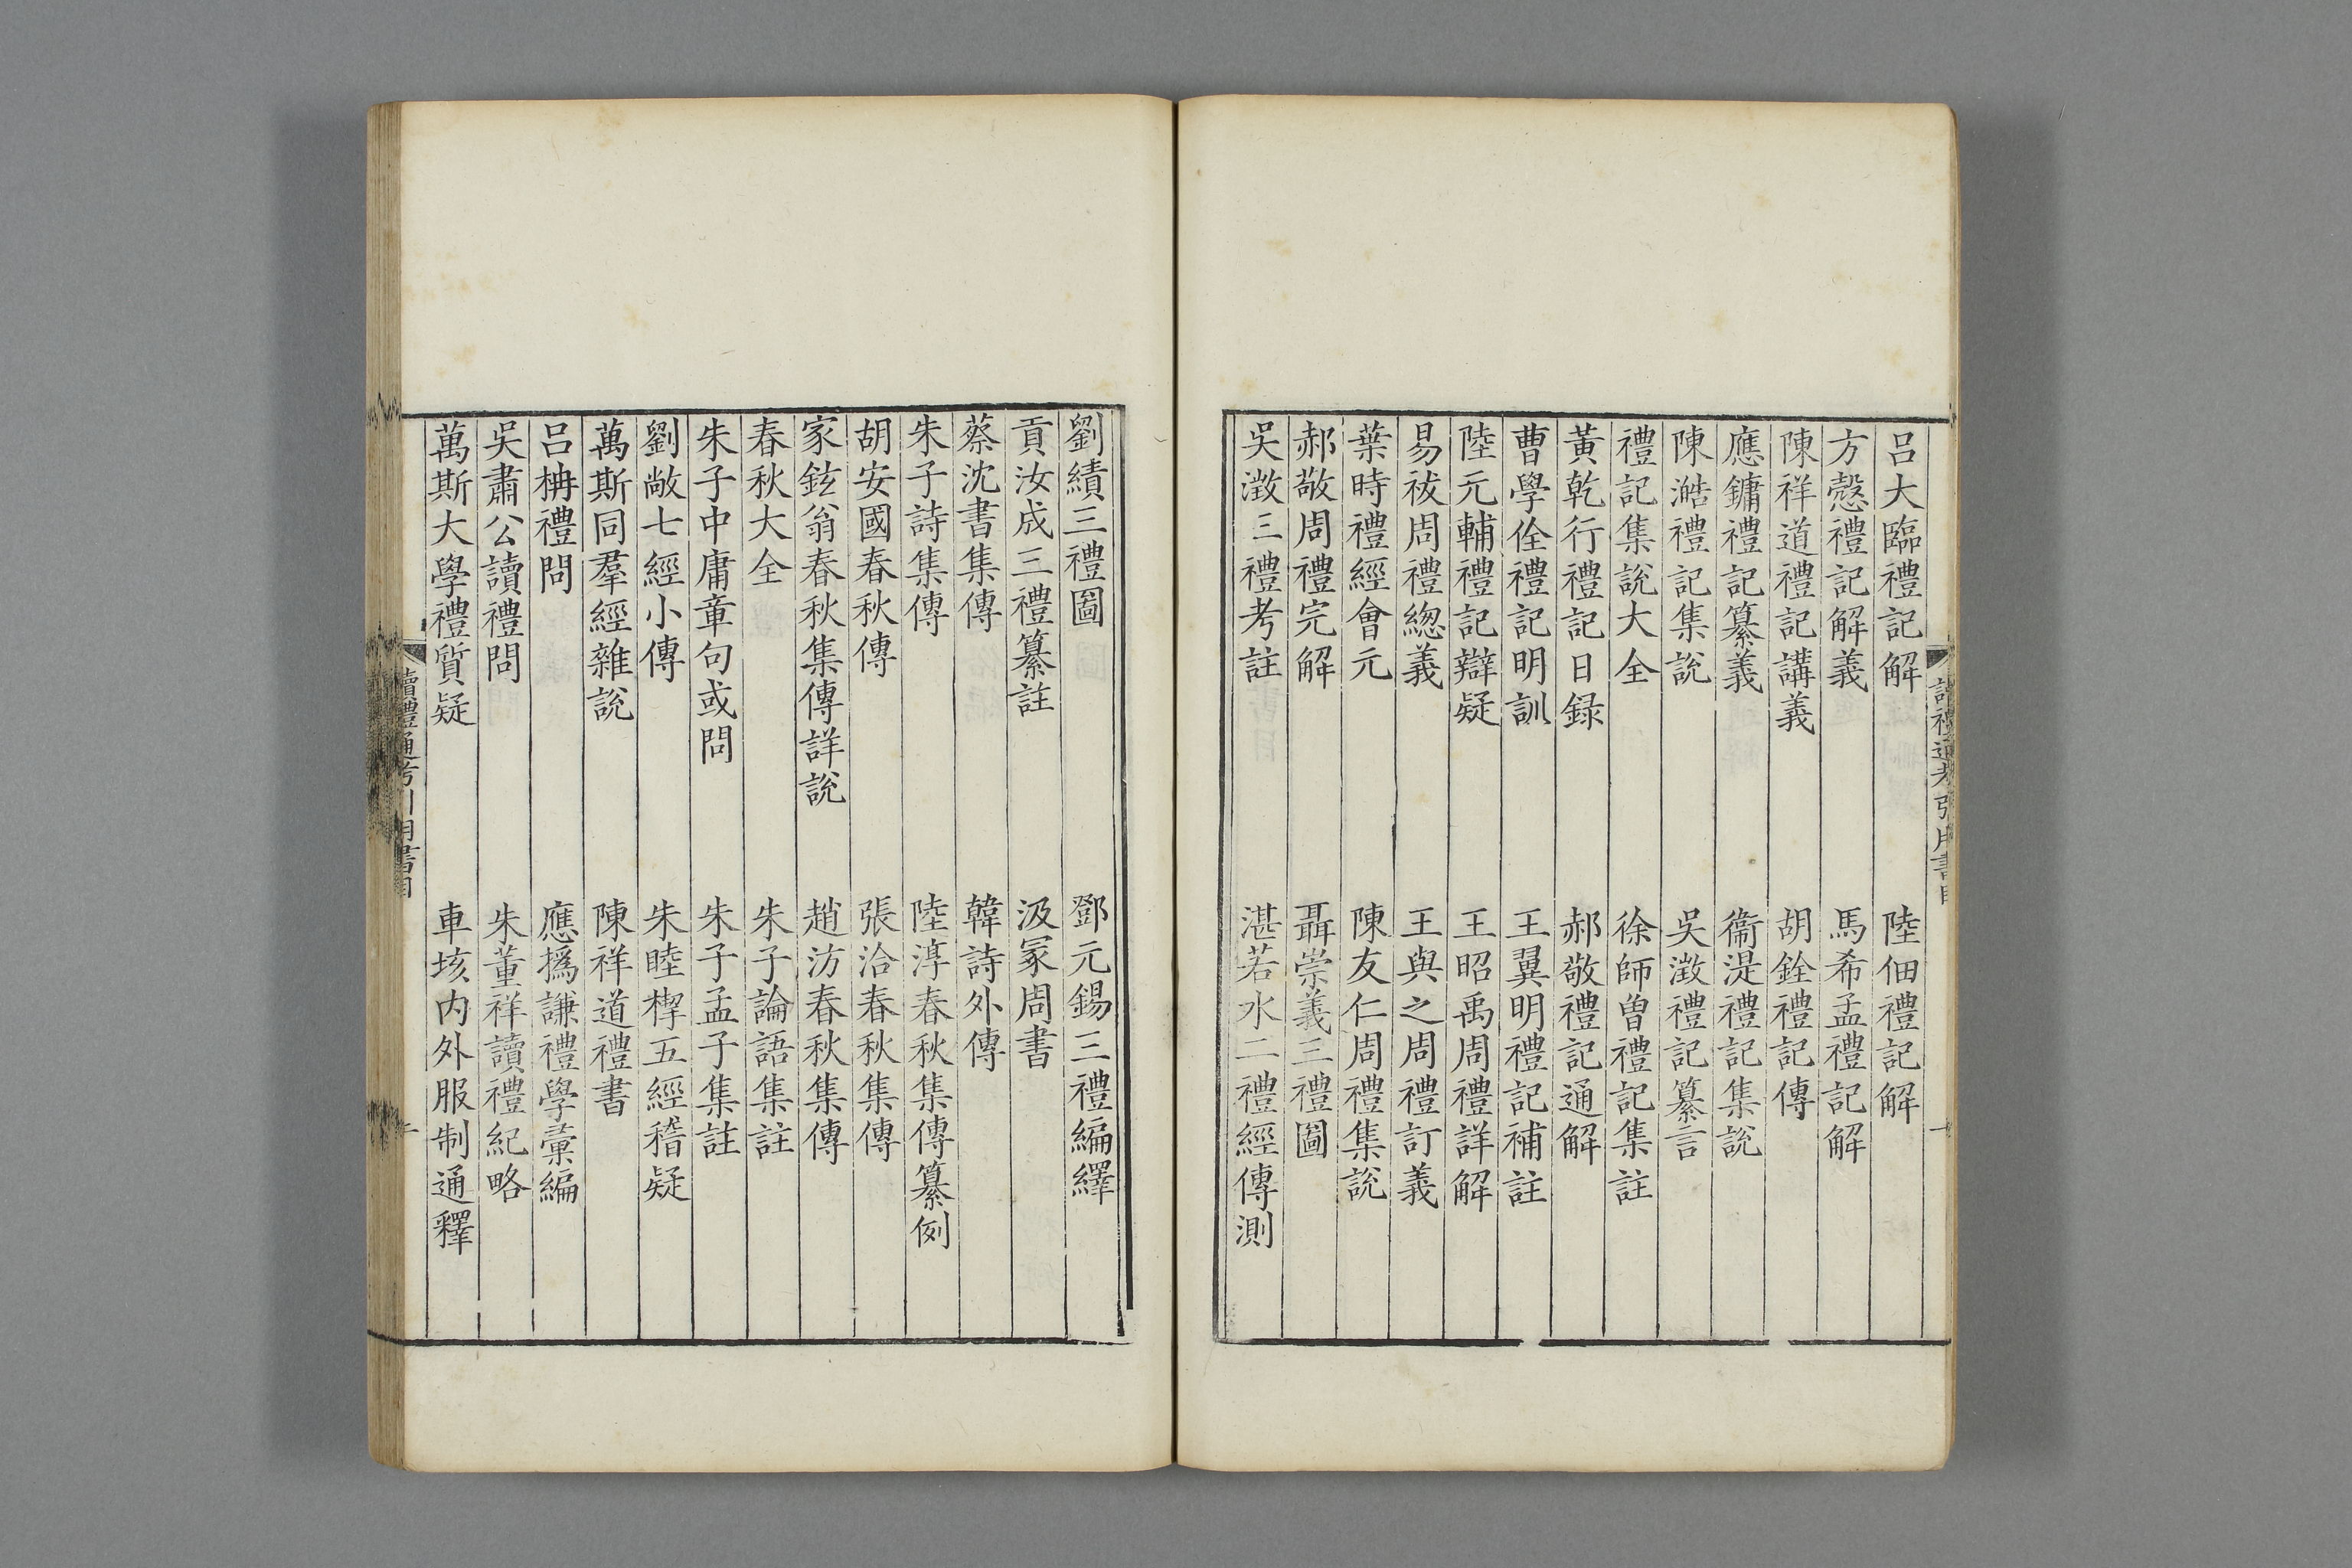 呂大臨禮記解 陸佃禮記解
方慤禮記解義 馬希孟禮記解
陳祥道禮記講義 胡銓禮記傳
應鏞禮記纂義 衞湜禮記集說
陳澔禮記集說 吳澂禮記纂言
禮記集說大全 徐師曽禮記集註
黃乾行禮記日録 郝敬禮記通解
曹學佺禮記明訓 王翼明禮記補註
陸元輔禮記辯疑 王昭禹周禮詳解
易祓周禮緫義 王與之周禮訂義
葉時禮經會元 陳友仁周禮集說
郝敬周禮完解 聶崇義三禮圖
吳澂三禮考註 湛若水二禮經傳測
劉績三禮圖 鄧元錫三禮編繹
貢汝成三禮纂註 汲冢周書
蔡沈書集傳 韓詩外傳
朱子詩集傳 陸淳春秋集傳纂例
胡安國春秋傳 張洽春秋集傳
家鉉翁春秋集傳詳說 趙汸春秋集傳
春秋大全 朱子論語集註
朱子中庸章句或問 朱子孟子集註
劉敞七經小傳 朱睦㮮五經稽疑
萬斯同羣經雜說 陳祥道禮書
呂柟禮問 應撝謙禮學彙編
吳肅公讀禮問 朱董祥讀禮紀略
萬斯大學禮質疑 車垓内外服制通釋
讀禮通考引用書目